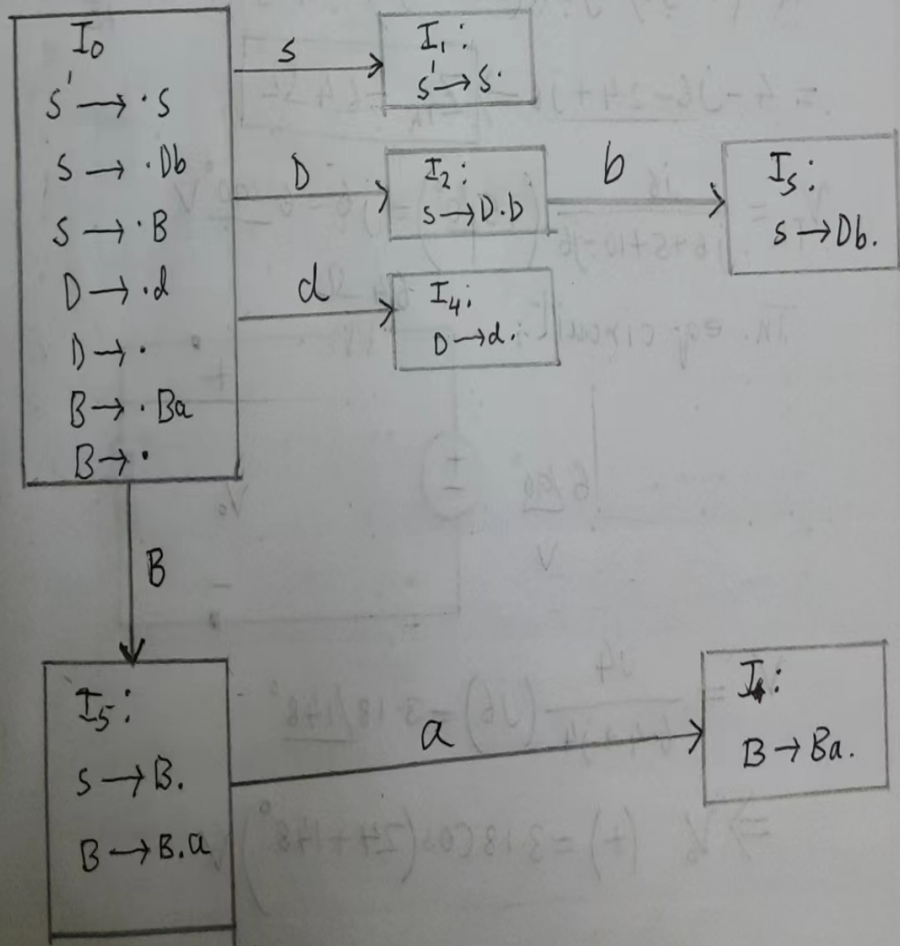 I0
S' → ·S
S → ·Db
S → ·B
D → ·d
D → ·
B → ·Ba
B → ·
S
I1:
S' → S·
D
I2:
S → D.b
b
I5:
S → Db.
d
I4:
D → d.
B
I5:
S → B.
B → B.a
a
B → Ba.